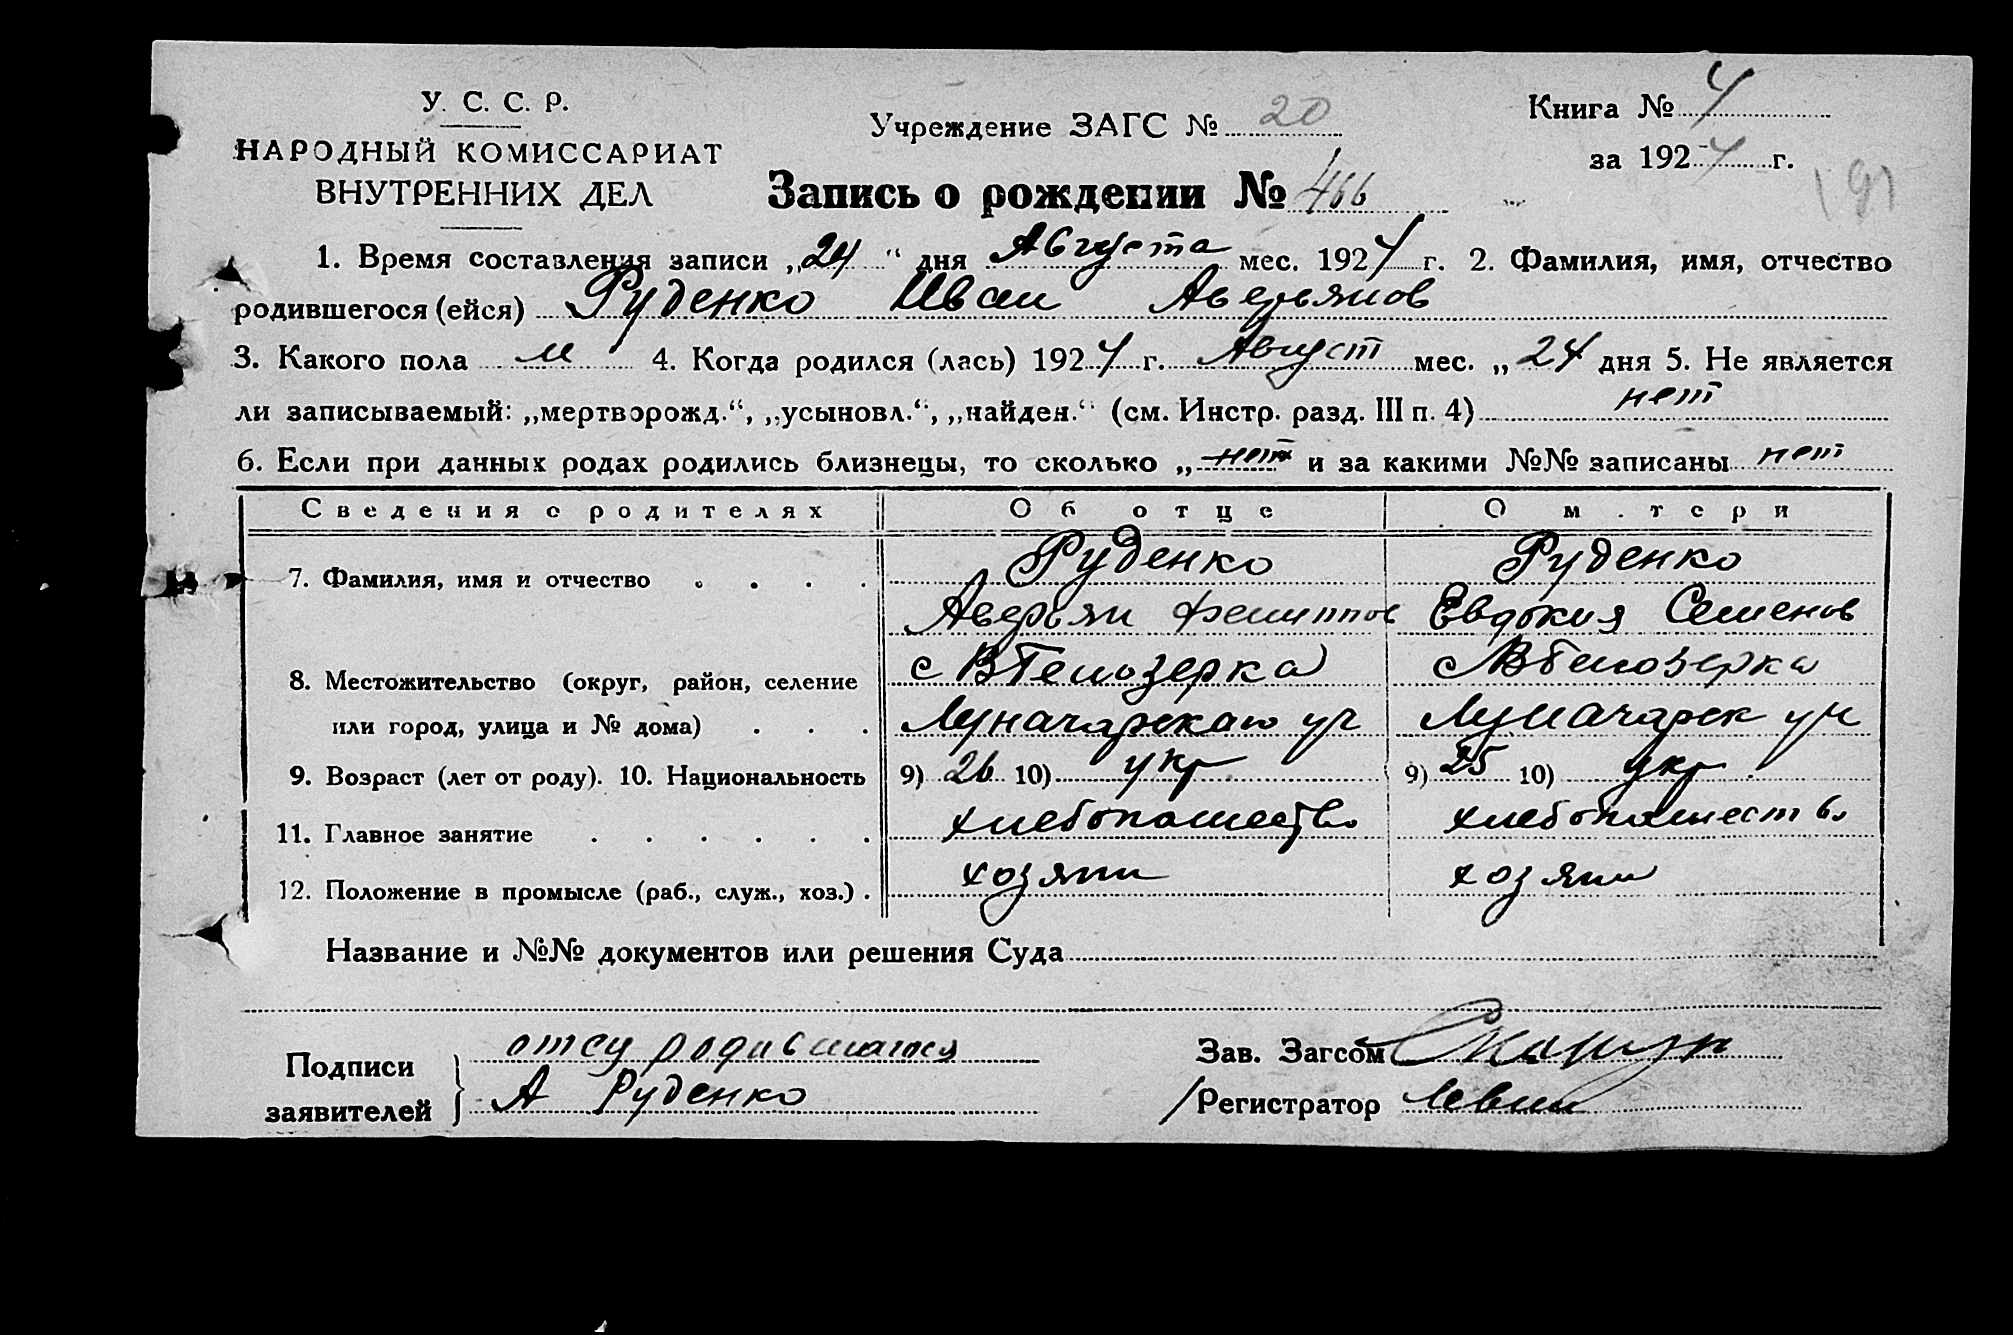 У. С. С. Р.
НАРОДНЫЙ КОМИССАРИАТ
ВНУТРЕННИХ ДЕЛ
Учреждение ЗАГС № 20
Книга № 4
за 1924 г.
Запись о рождении № 466
1. Время составления записи „24“ дня Августа мес. 1924 г. 2. Фамилия, имя, отчество
родившегося (ейся) Руденко Иван Аверьянов
3. Какого пола м 4. Когда родился (лась) 1924 г. Август мес. „24 дня 5. Не является
ли записываемый: „мертворожд.“, „усыновл.“, „найден.“ (см. Инстр. разд. III п. 4) нет
6. Если при данных родах родились близнецы, то сколько „нет и за какими №№ записаны нет
Сведения о родителях Об отце О м.тери
7. Фамилия, имя и отчество Руденко Руденко
Аверьян Филиппов Евдокия Семенов
8. Местожительство (округ, район, селение с В Белозерка с В Белозерка
или город, улица и № дома) Луначарскаю ул Луначарск ул
9. Возраст (лет от роду). 10. Национальность 9) 26 10) укр 9) 25 10) укр
11. Главное занятие хлебопашество хлебопашество
12. Положение в промысле (раб., служ., хоз.) хозяин хозяин
Название и №№ документов или решения Суда
Подписи заявителей
отец родившагося
А Руденко
Зав. Загсом
Регистратор Левин